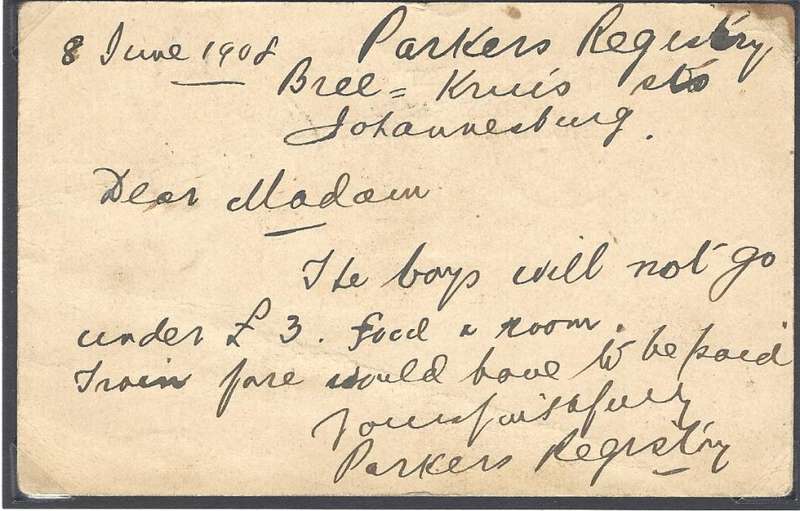 8 June 1908 Parkers Registry
Bree = Kruis sts
Johannesburg.
Dear Madam
The boys will not go
under £ 3. food & room.
Train fare would have to be paid
Yours faithfully
Parkers Registry